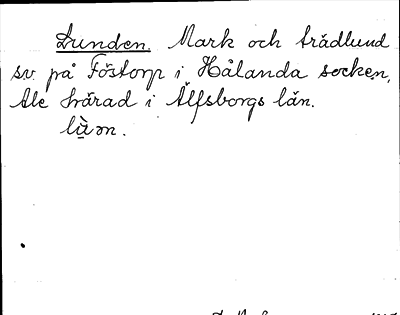 Lunden. Mark och trädlund
sv. på Föstorp i Hålanda socken,
Ale härad i Älfsborgs län.